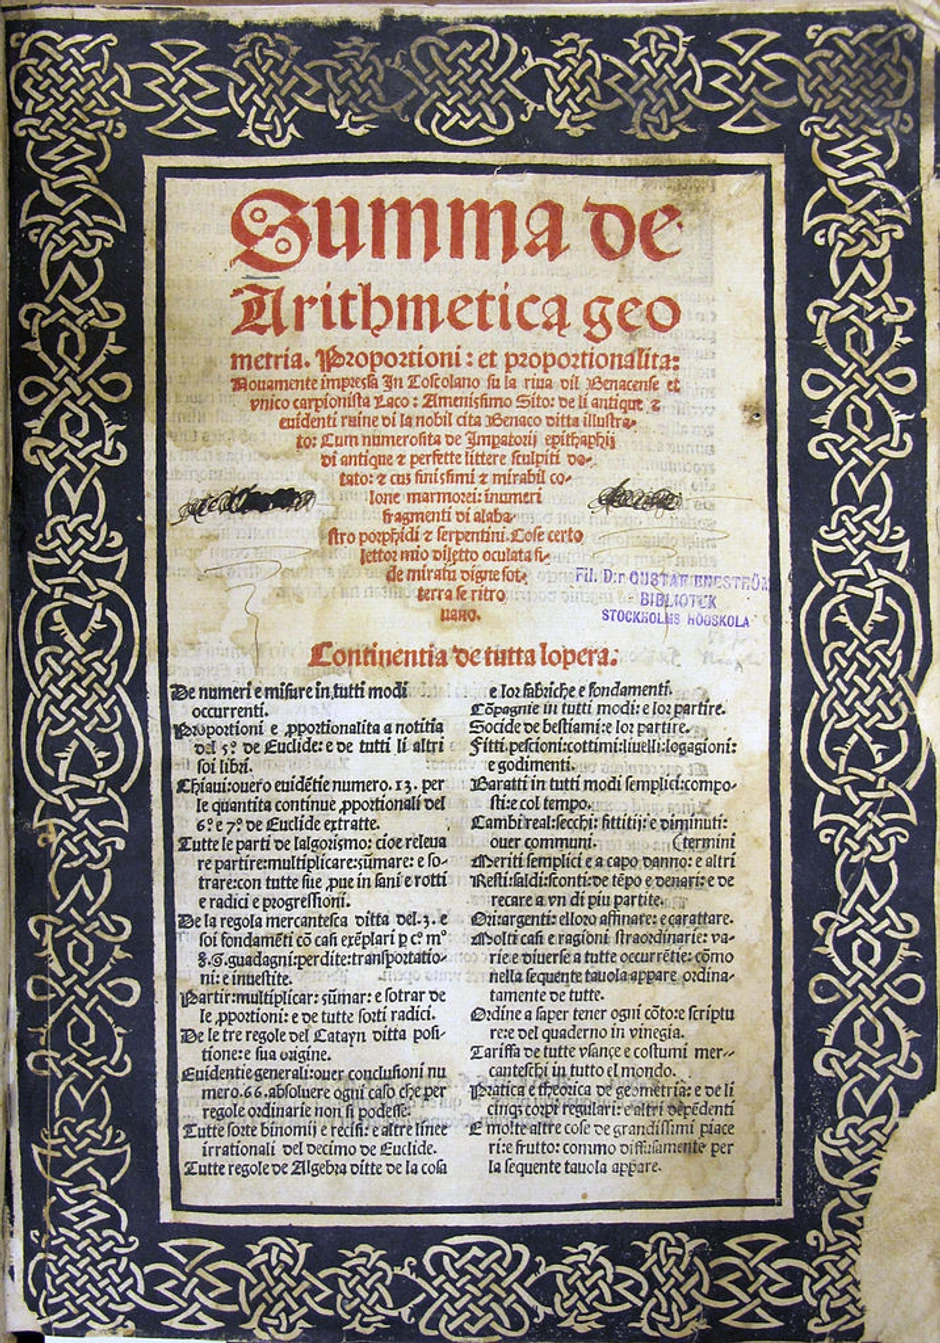 Summa de
Arithmetica geo
metria. Proportioni: et proportionalita:
Nouamente impressa In Toscolano su la riua dil Benacense et
vnico carpionista Laco: Amenissimo Sito: de li antique ⁊
euidenti ruine di la nobil cita Benaco ditta illustra-
to: Cum numerosita de Imperatorij epithaphij
di antique ⁊ perfette littere sculpiti do-
tato: ⁊ cus finissimi ⁊ mirabil co-
lone marmorei: inumeri
fragmenti di alaba-
stro porphidi ⁊ serpentini. Cose certo
lettor mio diletto oculata fi-
de miratu digne sot-
terra se ritro
uano.
Fil. D:r GUSTAF ENESTRÖM
BIBLIOTEK
STOCKHOLMS HÖGSKOLA
Continentia de tutta lopera:
De numeri e misure in tutti modi
occurrenti.
Proportioni e ꝓportionalita a notitia
del 5º. de Euclide: e de tutti li altri
soi libri.
Chiaui: ouero euidẽtie numero. 13. per
le quantita continue ꝓportionali del
6º. e 7º. de Euclide extratte.
Tutte le parti de lalgorismo: cioe releua
re partire: multiplicare: sũmare: e so-
trare: con tutte sue ꝓue in sani e rotti
e radici e progressioni.
De la regola mercantesca ditta del .3. e
soi fondamẽti cõ casi exẽplari ꝑ cº. mº
guadagni: perdite: transportatio-
ni: e inuestite.
Partir: multiplicar: sũmar: e sotrar de
le ꝓportioni: e de tutte sorti radici.
De le tre regole del Catayn ditta posi-
tione: e sua origine.
Euidentie generali: ouer conclusioni nu
mero. 66. absoluere ogni caso che per
regole ordinarie non si podesse.
Tutte sorte binomij e recisi: e altre linee
irrationali del decimo de Euclide.
Tutte regole de Algebra ditte de la cosa
e lor fabriche e fondamenti.
Cõpagnie in tutti modi: e lor partire.
Socide de bestiami: e lor partire.
Fitti: pescioni: cottimi: liuelli: logagioni:
e godimenti.
Baratti in tutti modi semplici: compo-
sti: e col tempo.
Cambi real: secchi: fittitij: e diminuti:
ouer communi.
Meriti semplici e a capo danno: e altri
(termini
Resti: saldi: sconti: de tẽpo e denari: e de
recare a vn di piu partite.
Ori: argenti: e lloro affinare: e carattare.
Molti casi e ragioni straordinarie: va-
rie e diuerse a tutte occurrẽtie: cõmo
nella sequente tauola appare ordina-
tamente de tutte.
Ordine a saper tener ogni cõto: e scriptu
re: e del quaderno in vinegia.
Tariffa de tutte vsançe e costumi mer-
canteschi in tutto el mondo.
Pratica e theorica de geometria: e de li
cinq; corpi regulari: e altri depẽdenti
E molte altre cose de grandissimi piace
ri: e frutto: commo diffusamente per
la sequente tauola appare.